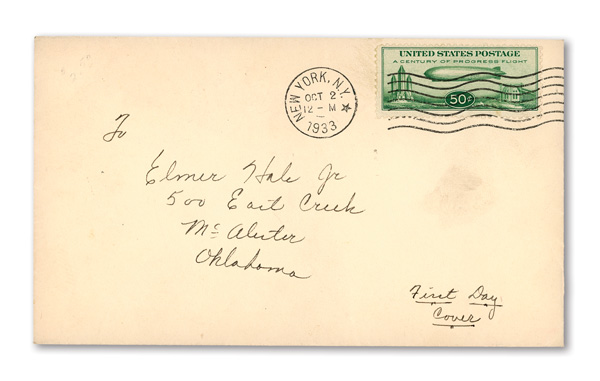 UNITED STATES POSTAGE
A CENTURY OF PROGRESS FLIGHT
50¢
NEW YORK, N.Y.
OCT 2
12 - M
1933
To
Elmer Hale Jr
500 East Creek
Mc Alester
Oklahoma
First Day
Cover